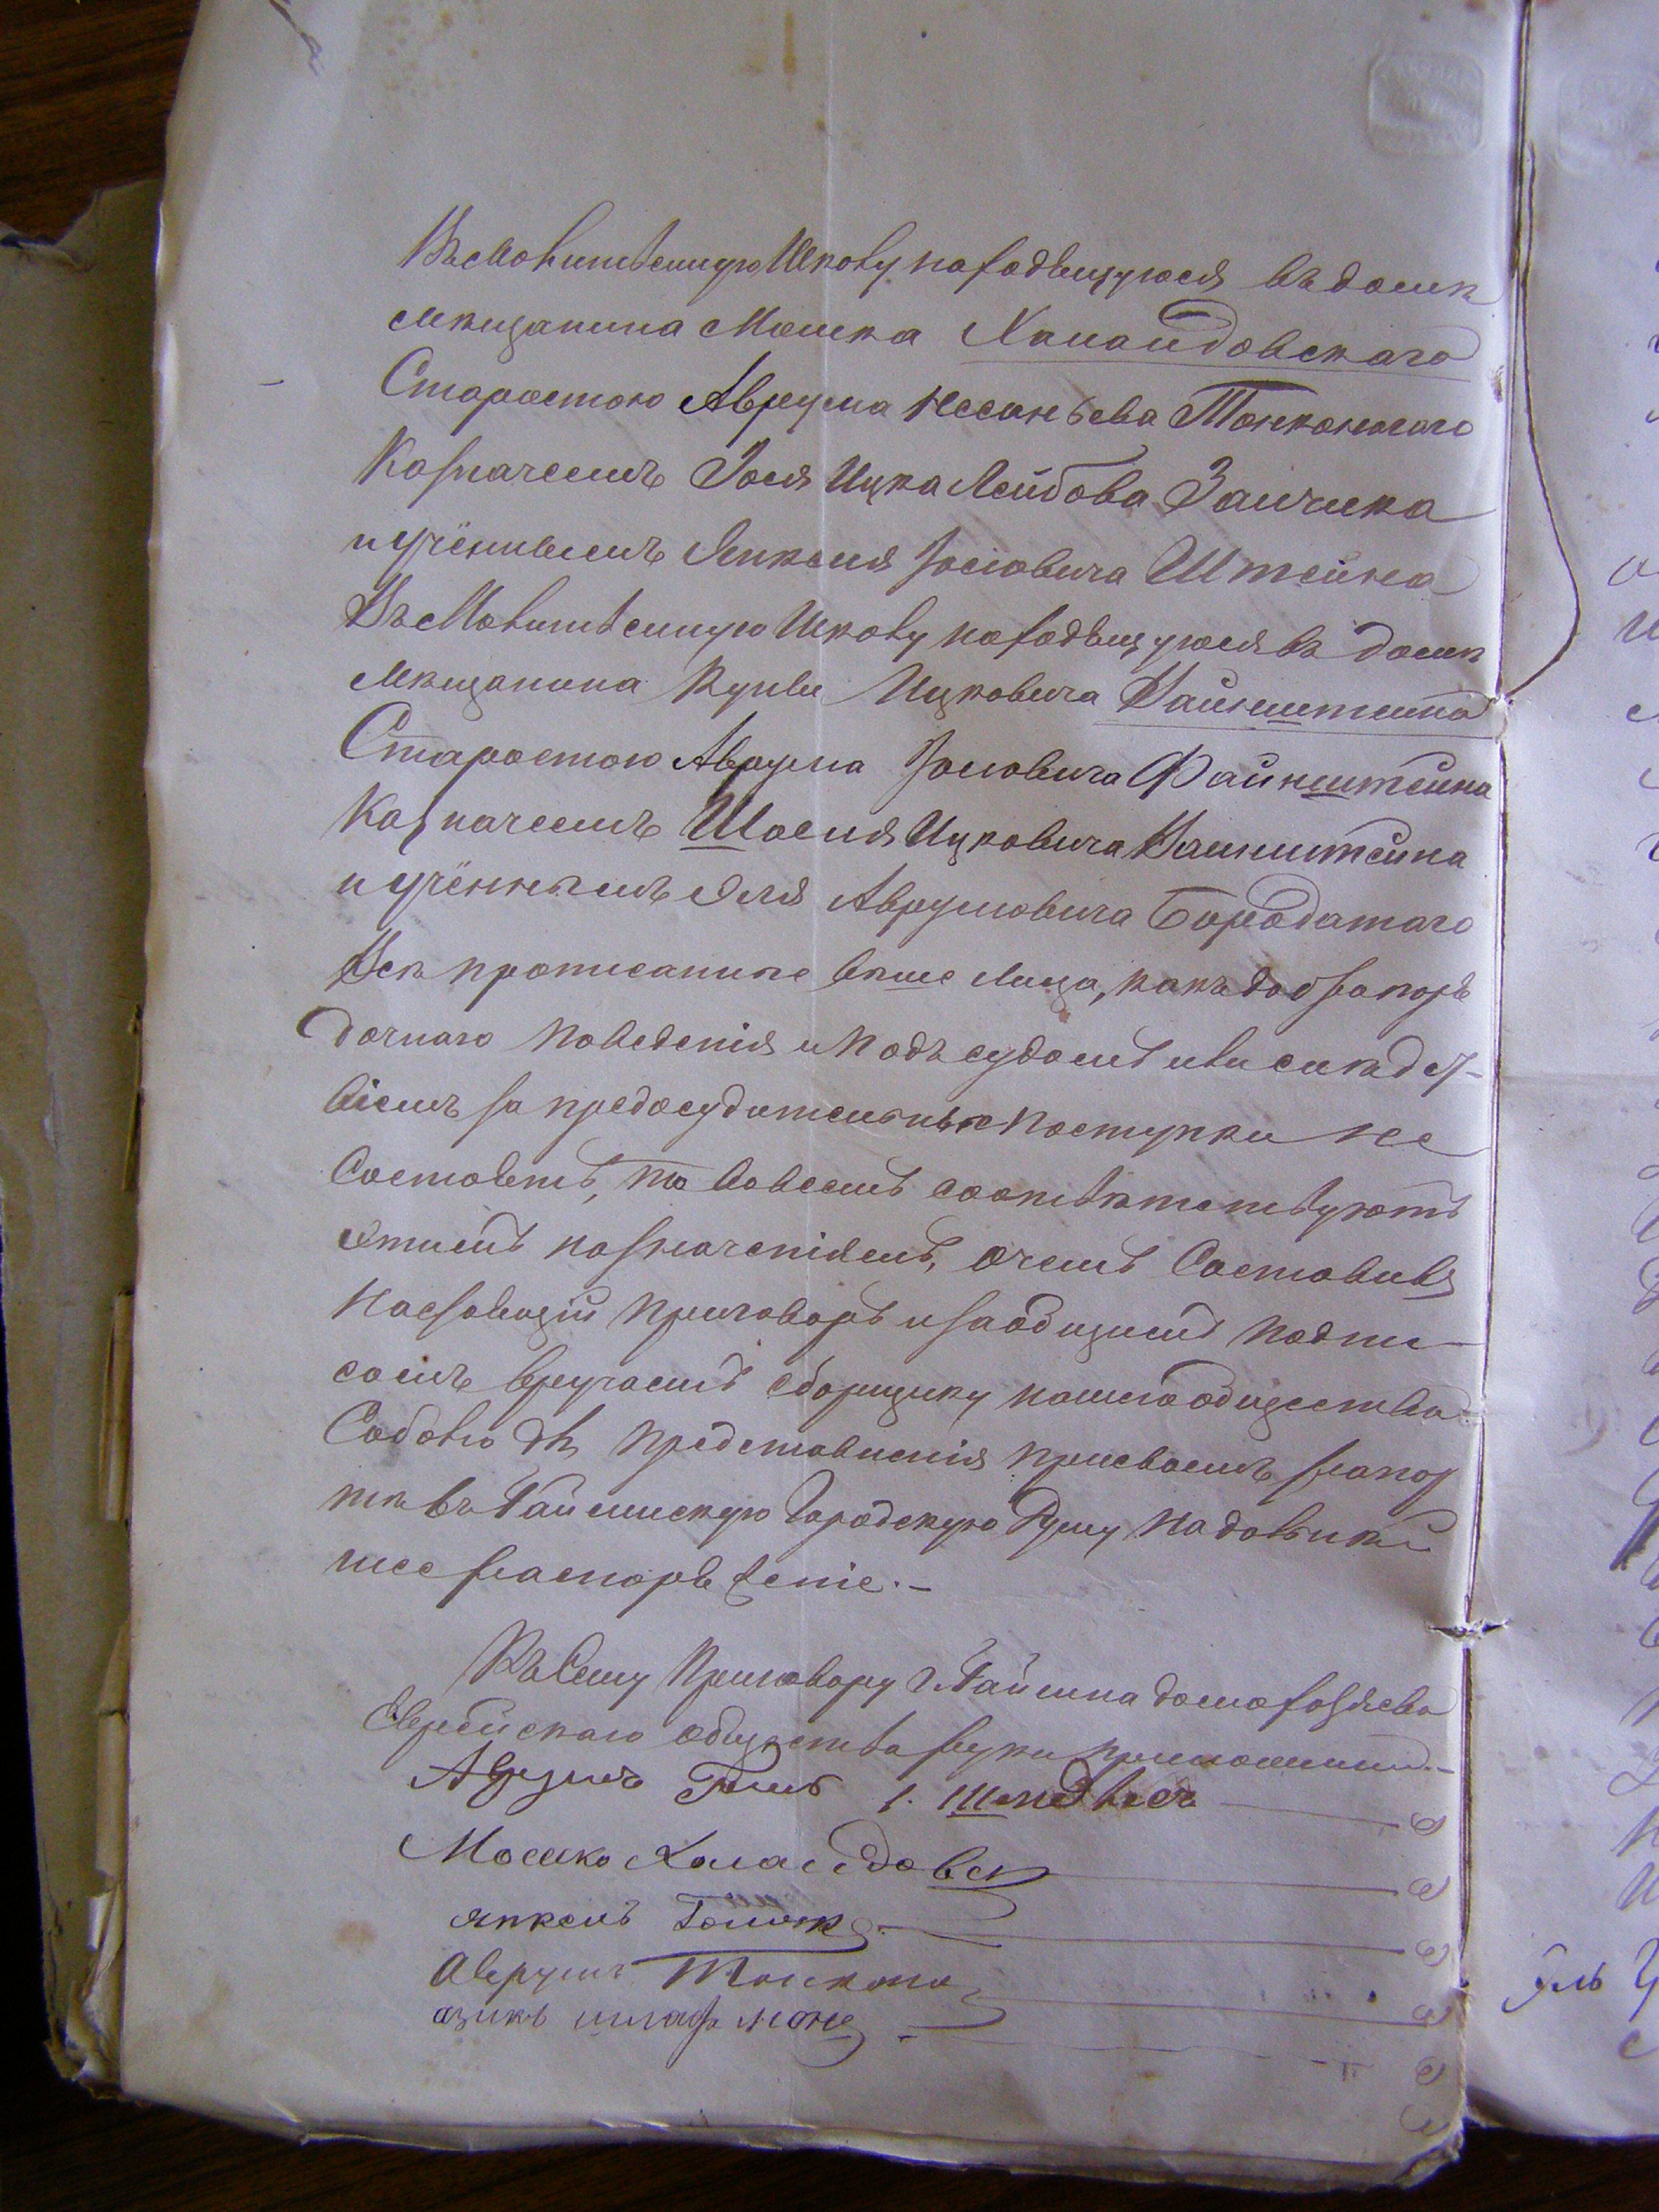 Въ Молитвенную Школу находящуюся въ доме
мещанина Мошка Халаидовскаго
Старостою Аврума Несаньева Тонконогаго
Казначеемъ Іося Ицка Лейбова Заичика
и учёнымъ Янкеля Іосіовича Штейна
Въ Молитвенную Школу находящуюся въ доме
мещанина Куны Ицковича Вайнштеина
Старостою Аврума Іосіовича Файнштейна
Казначеемъ Шоеля Ицковича Ваинштейна
и учённымъ Эля Аврумовича Бородатаго
Все прописаные выше лица, какъ добрапоря
дочнаго поведенія и подъ судомъ или следст-
віемъ за предосудительные поступки не
состоятъ, то вовсемъ соответствуютъ
этимъ назначеніямъ, очемъ составивъ
настоящій приговоръ и за общимъ подпи
сомъ вручаемъ сборщику нашего общества
Соболю для представленія присвоемъ рапор
те въ Гайсинскую Городскую Думу на дальней
шее распоряженіе.-
Къ Сему приговору г. Гайсина домохозяева
Еврейскаго общества руки приложили.-
Аврумъ
Мошко Халаидовск
янкель
Аврумъ Тонконо